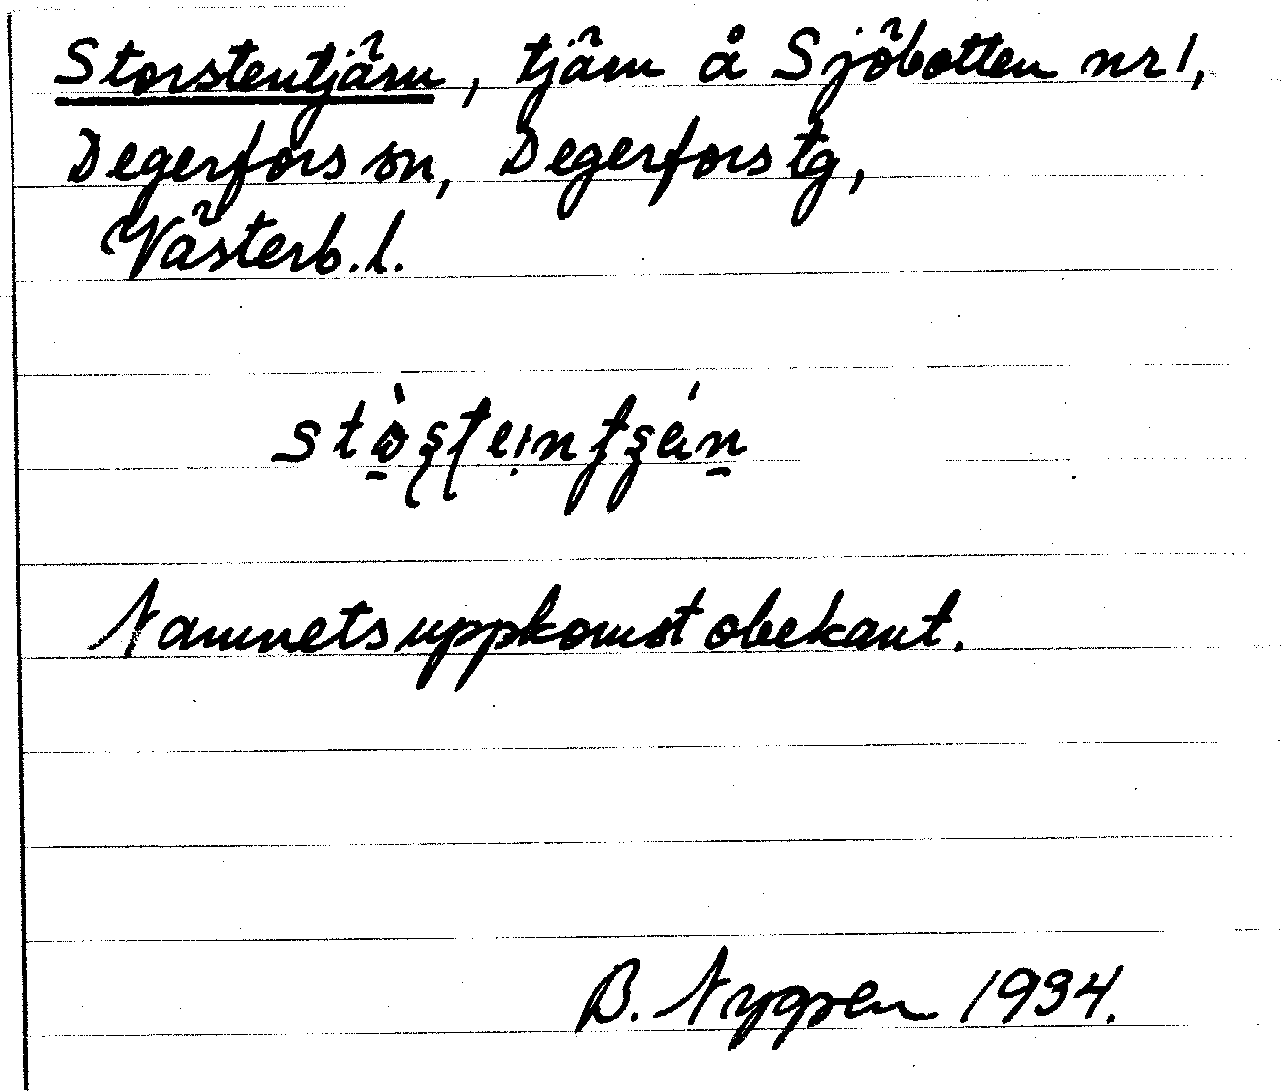 Storstentjärn, tjärn å Sjöbotten nr 1,
Degerfors sn, Degerfors tg,
Västerb. l.
Namnets uppkomst obekant.
B. Nygren 1934.